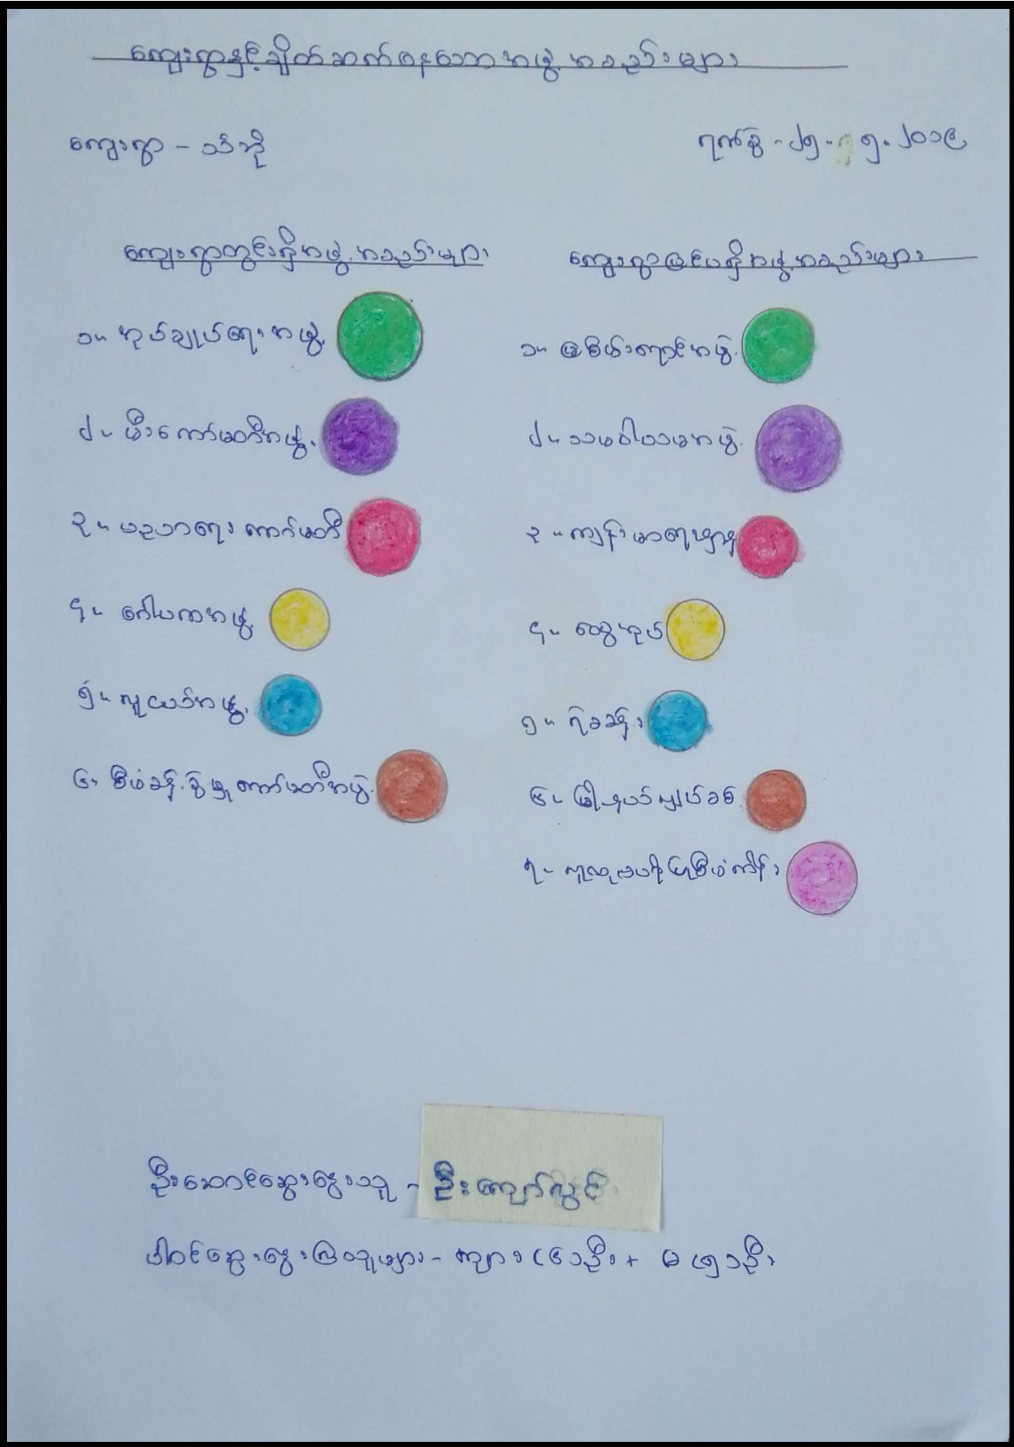 ကျေးရွာနှင့်ချိတ်ဆက်နေသောအဖွဲ့အစည်းများ
ကျေးရွာ - သင်္ဘို
ရက်စွဲ - ၂၅. ၅. ၂၀၁၉
ကျေးရွာတွင်းရှိအဖွဲ့အစည်းများ
၁။ အုပ်ချုပ်ရေးအဖွဲ့
၂။ မီးကော်မတီအဖွဲ့
၃။ ပညာရေးကော်မတီ
၄။ ဂေါပကအဖွဲ့
၅။ လူငယ်အဖွဲ့
၆။ စီမံခန့်ခွဲမှုကော်မတီအဖွဲ့
ကျေးရွာပြင်ပရှိအဖွဲ့အစည်းများ
၁။ မြစိမ်းရောင်အဖွဲ့
၂။ သမဝါယမအဖွဲ့
၃။ ကျန်းမာရေးဌာန
၄။ ထွေအုပ်
၅။ ရဲစခန်း
၆။ မြို့နယ်
၇။ လူထုဗဟိုပြုစီမံကိန်း
ဦးဆောင်ဆွေးနွေးသူ - ဦးကျော်လွင်
ပါဝင်ဆွေးနွေးကြသူများ - ကျား ၊ ဦး + မ ဦး